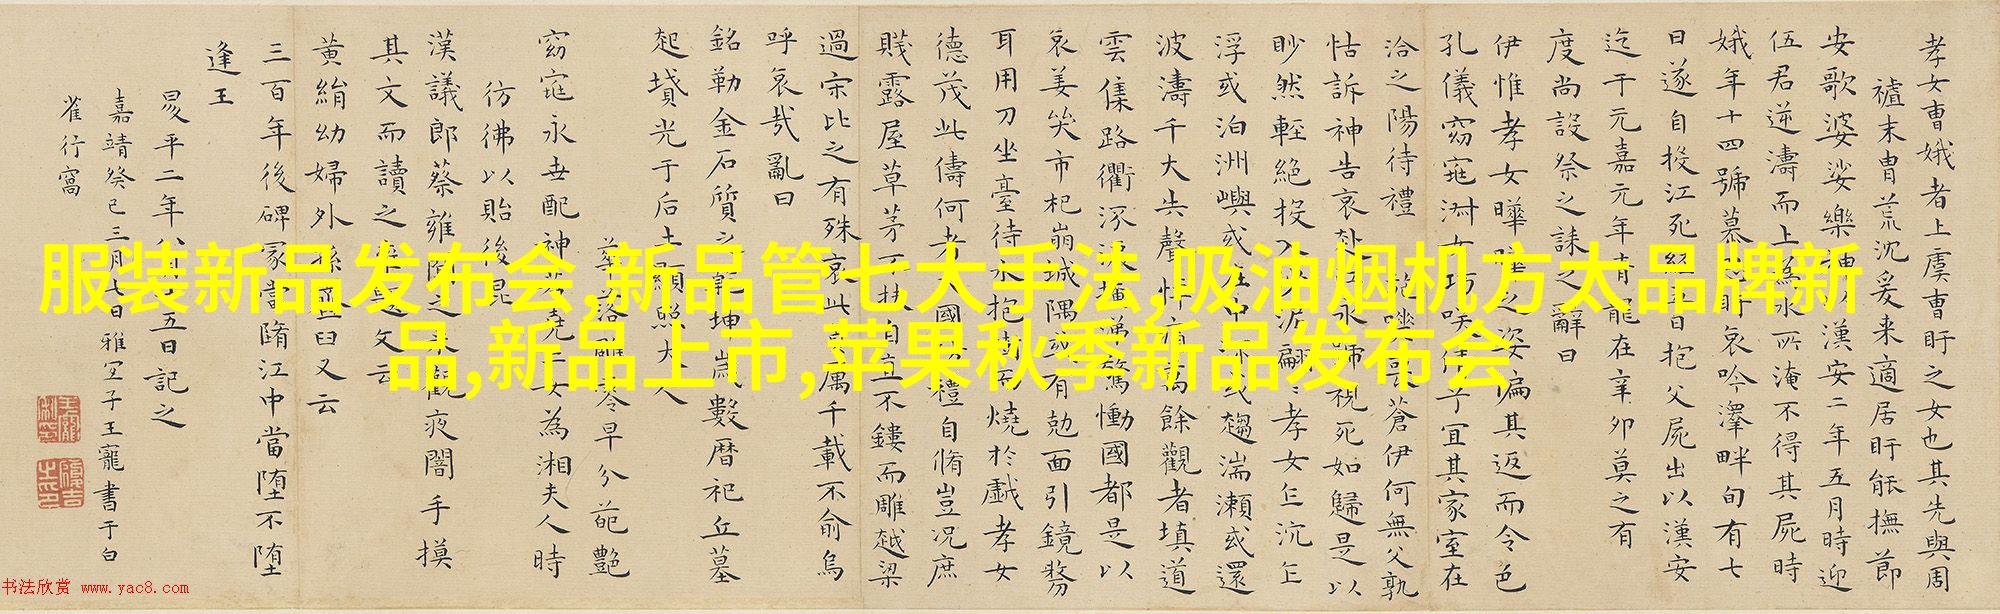 服装新品发布会,新品管七大手法,吸油烟机方太品牌新
品,新品上市,苹果秋季新品发布会
孝女曹娥者上虞曹盱之女也其先與周
末胄荒沉爰来適居盱能撫節
安歌婆娑樂神以漢安二年五月時迎
伍君逆濤而上為水所淹不得其屍時
娥年十四號慕思盱哀吟澤畔旬有七
日遂自投江死經五日抱父屍出以漢安
迄于元嘉元年青龍在辛卯莫之有
度尚設祭之誄之辭曰
伊惟孝女曄曄之姿偏其返而令色
孔儀窈窕淑女巧笑倩兮宜其家室在
洽之陽待禮蒼伊何無父孰
怙訴神告哀赴江永號視死如歸是以
眇然輕絕投入泥翩翩孝女乍沉乍
浮或泊洲嶼或在中或趨湍瀨或還
波濤千夫失聲悼痛萬餘觀者填道
雲集路衢涕驚慟國都是以
哀姜哭市杞崩城隅或有剋面引鏡剺
耳用刀坐臺待水抱樹而燒於戲孝女
德茂此儔何者大國禮自脩豈況庶
賤露屋草茅不扶自直不鏤而雕越梁
過宋比之有殊哀此貞厲千載不俞烏
呼哀哉亂曰
銘勒金石質之乾坤歲數曆祀丘墓
起墳光于后土顯照夫人
華落雕零早分葩艷
窈窕永世配神若堯二女為湘夫人時
彷彿以貽後昆
漢議郎蔡雍聞之来觀夜闇手摸
其文而讀之文云
黄絹幼婦外孫臼又云
三百年後碑冢當隋江中當堕不堕
逢王
昇平二年八月十五日記之
嘉靖癸巳三月七日雅宜子王寵書于白
雀行窩
书法欣赏 www.yac8.com